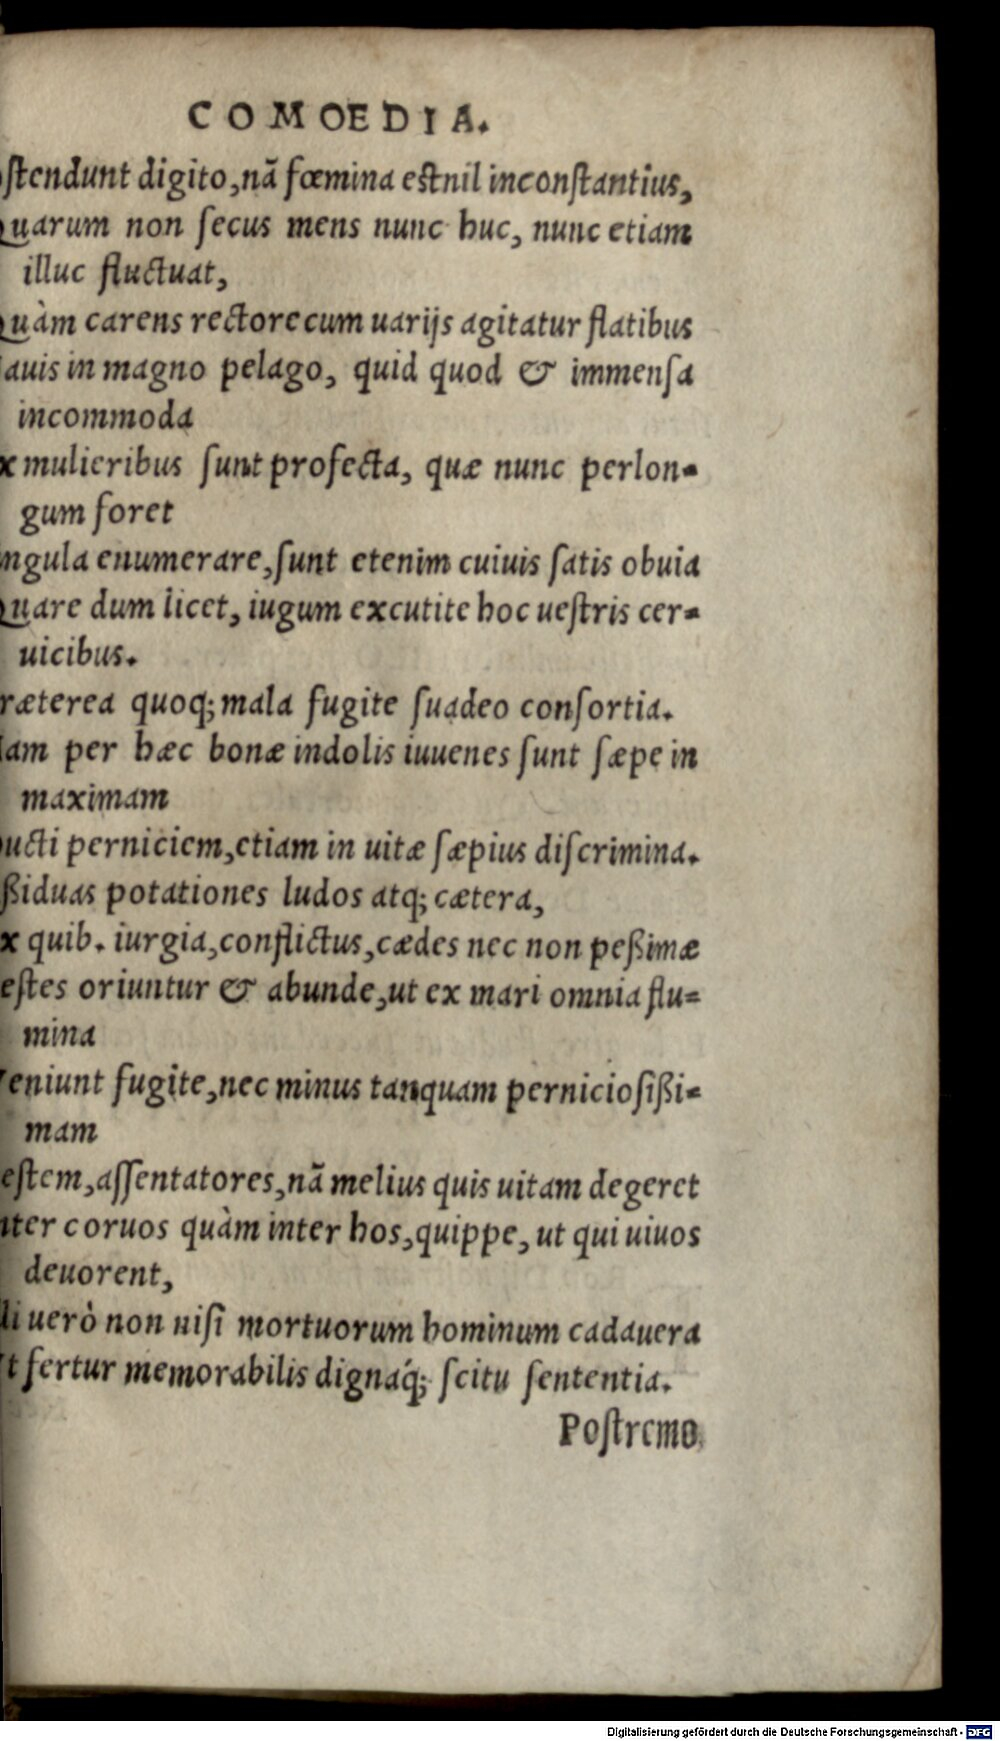 COMOEDIA.
ſtendunt digito, nã fœmina est nil inconſtantius,
Quarum non ſecus mens nunc huc, nunc etiam
illuc fluctuat,
Quàm carens rectore cum uarijs agitatur flatibus
auis in magno pelago, quid quod & immenſa
incommoda
x mulieribus ſunt profecta, quæ nunc perlon-
gum foret
ngula enumerare, ſunt etenim cuiuis ſatis obuia
Quare dum licet, iugum excutite hoc ueſtris cer-
uicibus.
ræterea quoq; mala fugite ſuadeo conſortia.
am per hæc bonæ indolis iuuenes ſunt ſæpe in
maximam
ucti perniciem, etiam in uitæ ſæpius diſcrimina.
ßiduas potationes ludos atq; cætera,
x quib. iurgia, conflictus, cædes nec non peßimæ
eſtes oriuntur & abunde, ut ex mari omnia flu-
mina
eniunt fugite, nec minus tanquam pernicioſißi-
mam
eſtem, aſſentatores, nã melius quis uitam degeret
nter coruos quàm inter hos, quippe, ut qui uiuos
deuorent,
li uerò non niſi mortuorum hominum cadauera
t fertur memorabilis dignáq; ſcitu ſententia.
Poſtremo
Digitalisierung gefördert durch die Deutsche Forschungsgemeinschaft - DFG